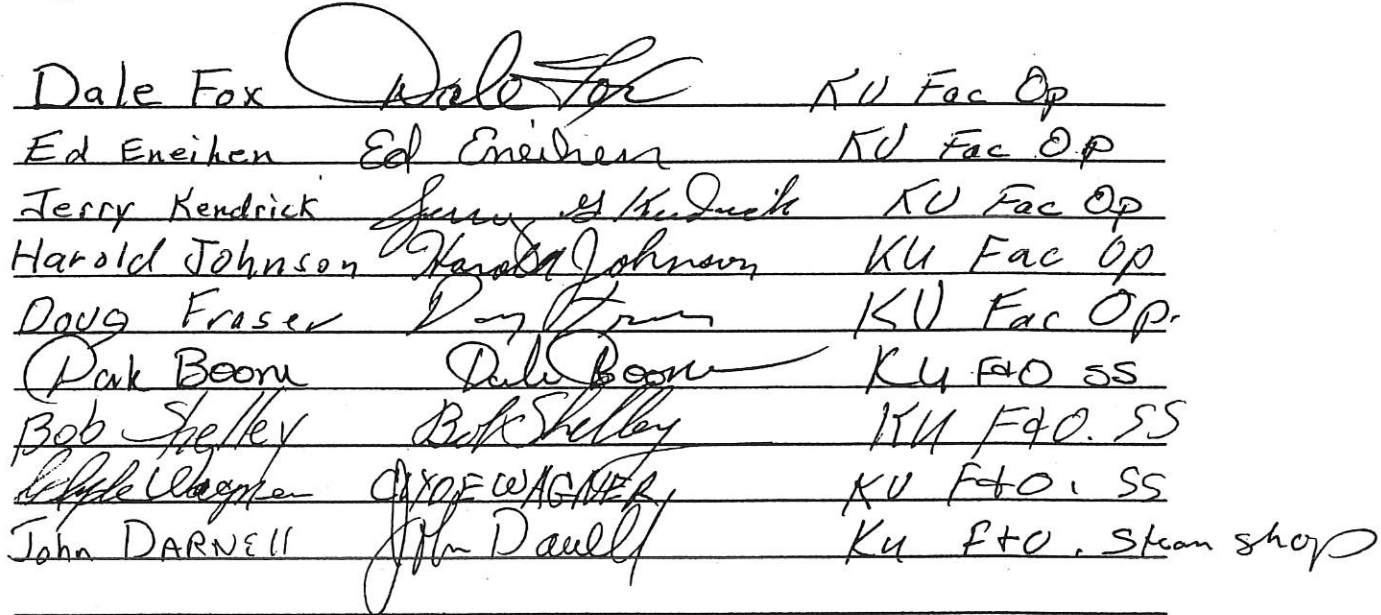 Dale Fox Dale Fox KU Fac Op
Ed Eneihen Ed Eneihen KU Fac Op
Jerry Kendrick Jerry G Kendrick KU Fac Op
Harold Johnson Harold Johnson KU Fac Op
Doug Fraser Doug Fraser KU Fac Op.
Boone Boone KU F&O SS
Bob Shelley Bob Shelley KU F&O. SS
Clyde Wagner CLYDE WAGNER KU F&O. SS
John DARNEll John Darnell KU F+O. Steam shop